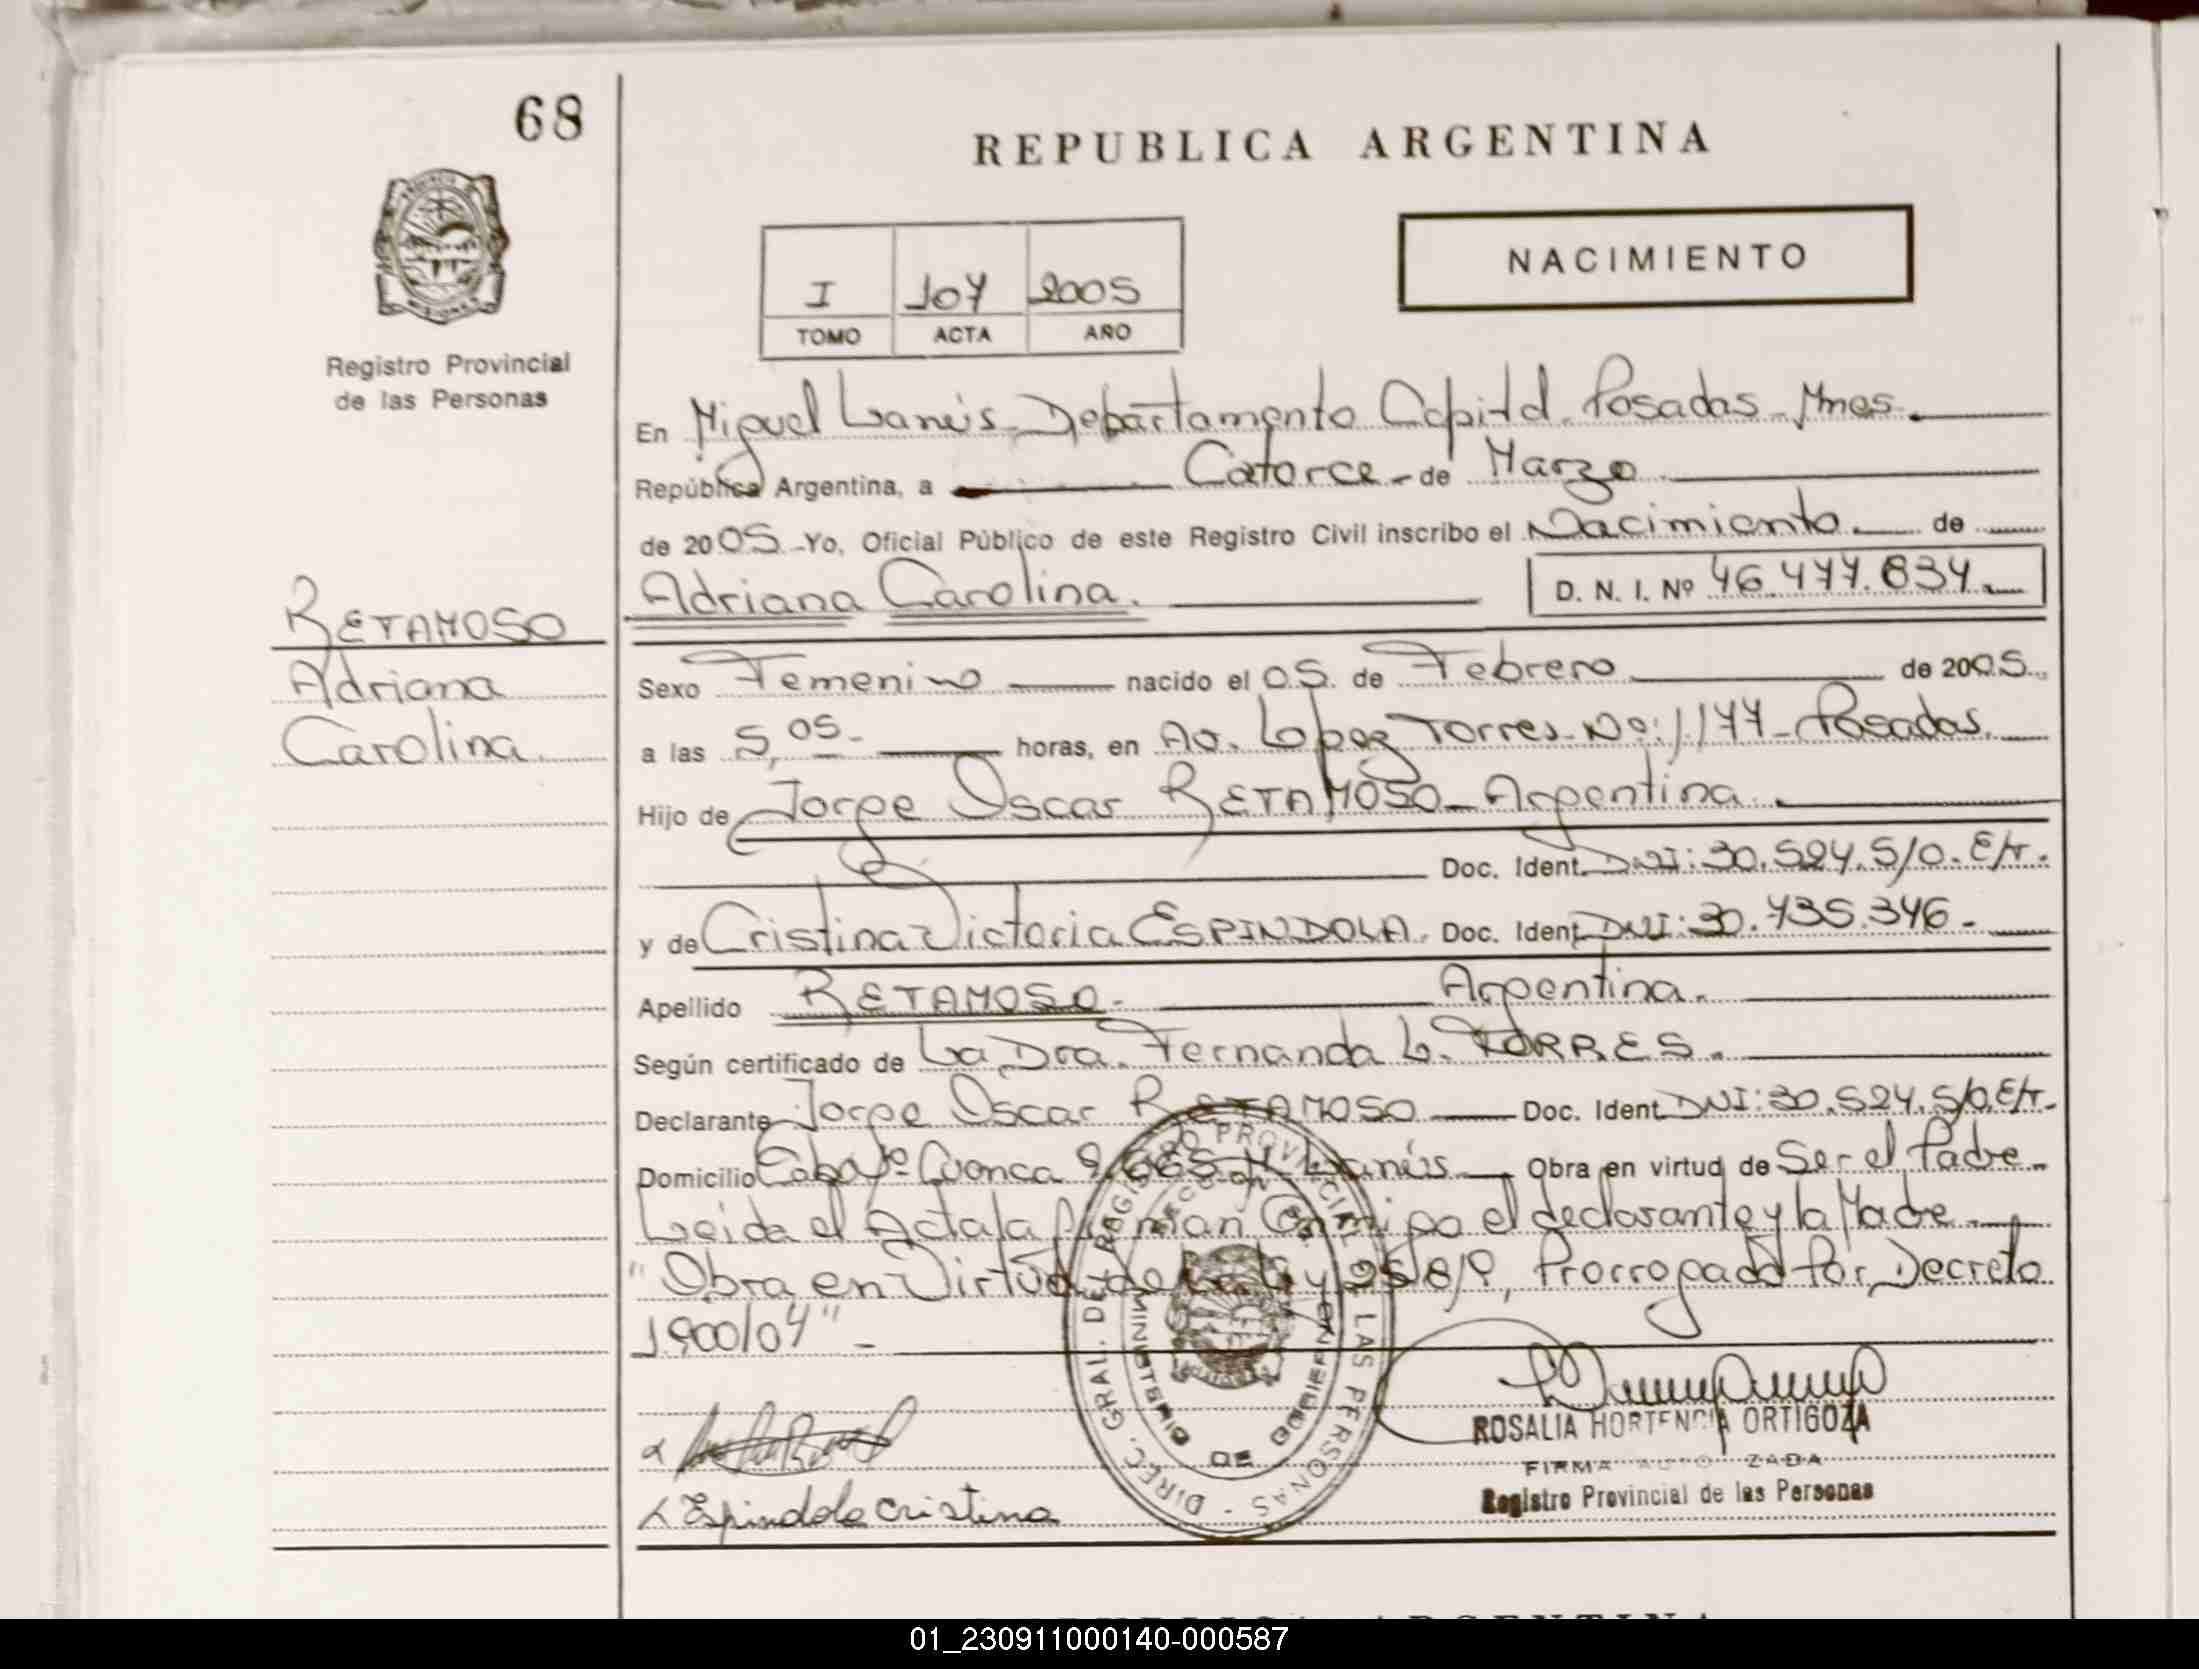 68
REPUBLICA ARGENTINA
PROVINCIA DE MISIONES
Registro Provincial
de las Personas
I 107 2005
TOMO ACTA AÑO
NACIMIENTO
En Miguel Lanús Departamento Capital Posadas Mnes.
República Argentina, a Catorce de Marzo
de 2005 Yo, Oficial Público de este Registro Civil inscribo el Nacimiento de
Adriana Carolina. D. N. I. Nº 46.477.834
RETAMOSO
Adriana
Carolina
Sexo Femenino nacido el 05 de Febrero de 2005
a las 5,05 horas, en Av. Lopez Torres Nº: 1177 Posadas
Hijo de Jorge Oscar RETAMOSO Argentina
Doc. Ident. DNI: 30.524.510. E/T.
y de Cristina Victoria ESPINDOLA. Doc. Ident DNI: 30.735.346
Apellido RETAMOSO Argentina.
Según certificado de La Dra. Fernanda L. TORRES.
Declarante Jorge Oscar RETAMOSO Doc. Ident DNI: 30.524.510 E/T.
Domicilio Lanús Obra en virtud de Ser el Padre
Leida el Acta la firman Conmigo el declarante y la Madre
"Obra en Virtud de la Ley 25819, Prorrogado Por Decreto
1900/04"
Espindola Cristina
DIREC. GRAL. DEL REGISTRO PROVINCIAL DE LAS PERSONAS
MINISTERIO DE GOBIERNO
ROSALIA HORTENCIA ORTIGOZA
FIRMA AUTORIZADA
Registro Provincial de las Personas
REPUBLICA ARGENTINA
01_230911000140-000587